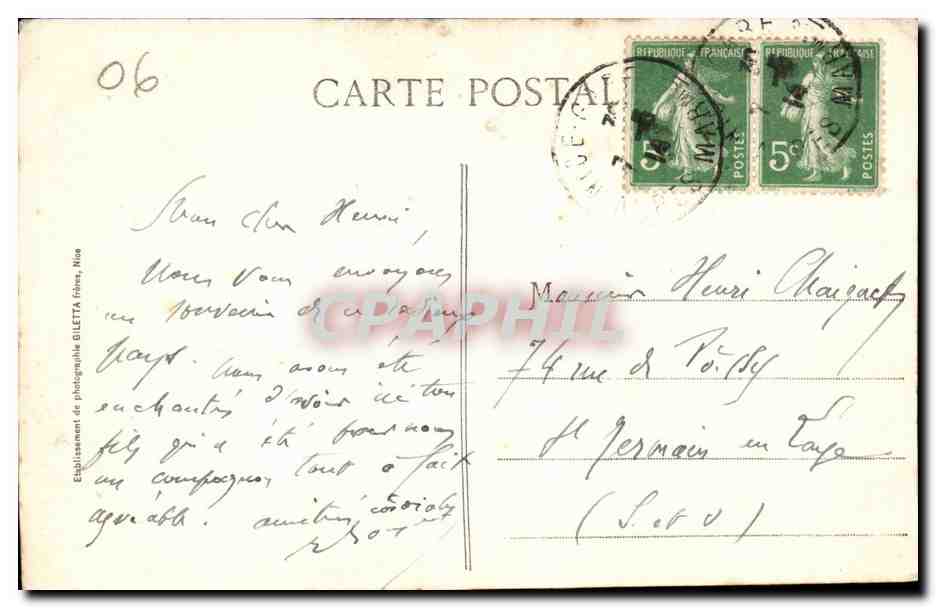 06
CARTE POSTAL
REPUBLIQUE FRANÇAISE
5c
POSTES
REPUBLIQUE FRANÇAISE
5c
POSTES
Mon cher Henri,
Nous vous envoyons
un souvenir de ce
pays. nous avons été
enchantés d'avoir ici ton
fils qui a été pour nous
un compagnon tout à fait
agréable. amitiés cordiales
Monsieur Henri
74 rue de Poissy
St Germain en Laye
(S. et O)
Etablissement de photographie GILETTA frères, Nice
CPAPHIL